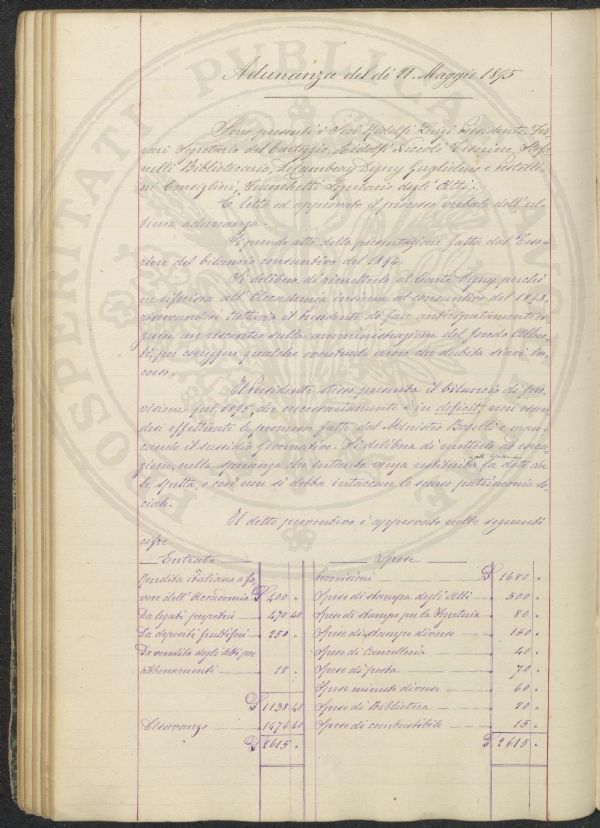 Adunanza del dì 21. Maggio 1895
Sono presenti i Soci Ridolfi Luigi Presidente, Fer-
rari Segretario del Carteggio, Ridolfi Niccolò Tesoriere, Stefa-
nelli Bibliotecario, De Cambray Digny Guglielmo e Pestelli-
ni Consiglieri, Franchetti Segretario degli Atti.
È letto ed approvato il processo verbale dell'ul-
tima adunanza.
Si prende atto della presentazione fatta dal Teso-
riere del bilancio consuntivo del 1894.
Si delibera di rimetterlo al Conte Digny perchè
ne riferisca all'Accademia insieme al consuntivo del 1893,
riservandosi tuttavia il Presidente di fare anticipatamente ese-
guire un riscontro sulla amministrazione del fondo Alber-
ti, per correggere qualche eventuale errore che dubita siavi in-
corso.
Il Presidente stesso presenta il bilancio di pre-
visione pel 1895, che necessariamente è in deficit, non essen-
dosi effettuate le promesse fatte dal Ministro Boselli e man-
cando il sussidio governativo. Si delibera di metterlo ad esecu-
zione, nella speranza che intanto venga restituita la dote che
le spetta, e così non si debba intaccare lo scarso patrimonio so-
ciale.
Il detto preventivo è approvato nelle seguenti
cifre.
Entrate Spese
Rendita italiana a fa- Provvisioni £ 1680 "
vore dell'Accademia £ 400 " Spese di stampa degli Atti 500 "
Da legati perpetui 470 40 Spese di stampe per la Segreteria 80 "
Da depositi fruttiferi 250 " Spese di stampe diverse 150 "
Da vendita degli Atti per Spese di Cancelleria 40 "
abbonamenti 18 " Spese di posta 70 "
Spese minute diverse 60 "
£ 1138 40 Spese di Biblioteca 20 "
Disavanzo 1476 60 Spese di combustibile 15 "
£ 2615 " £ 2615 "
PROSPERITATI PUBLICAE